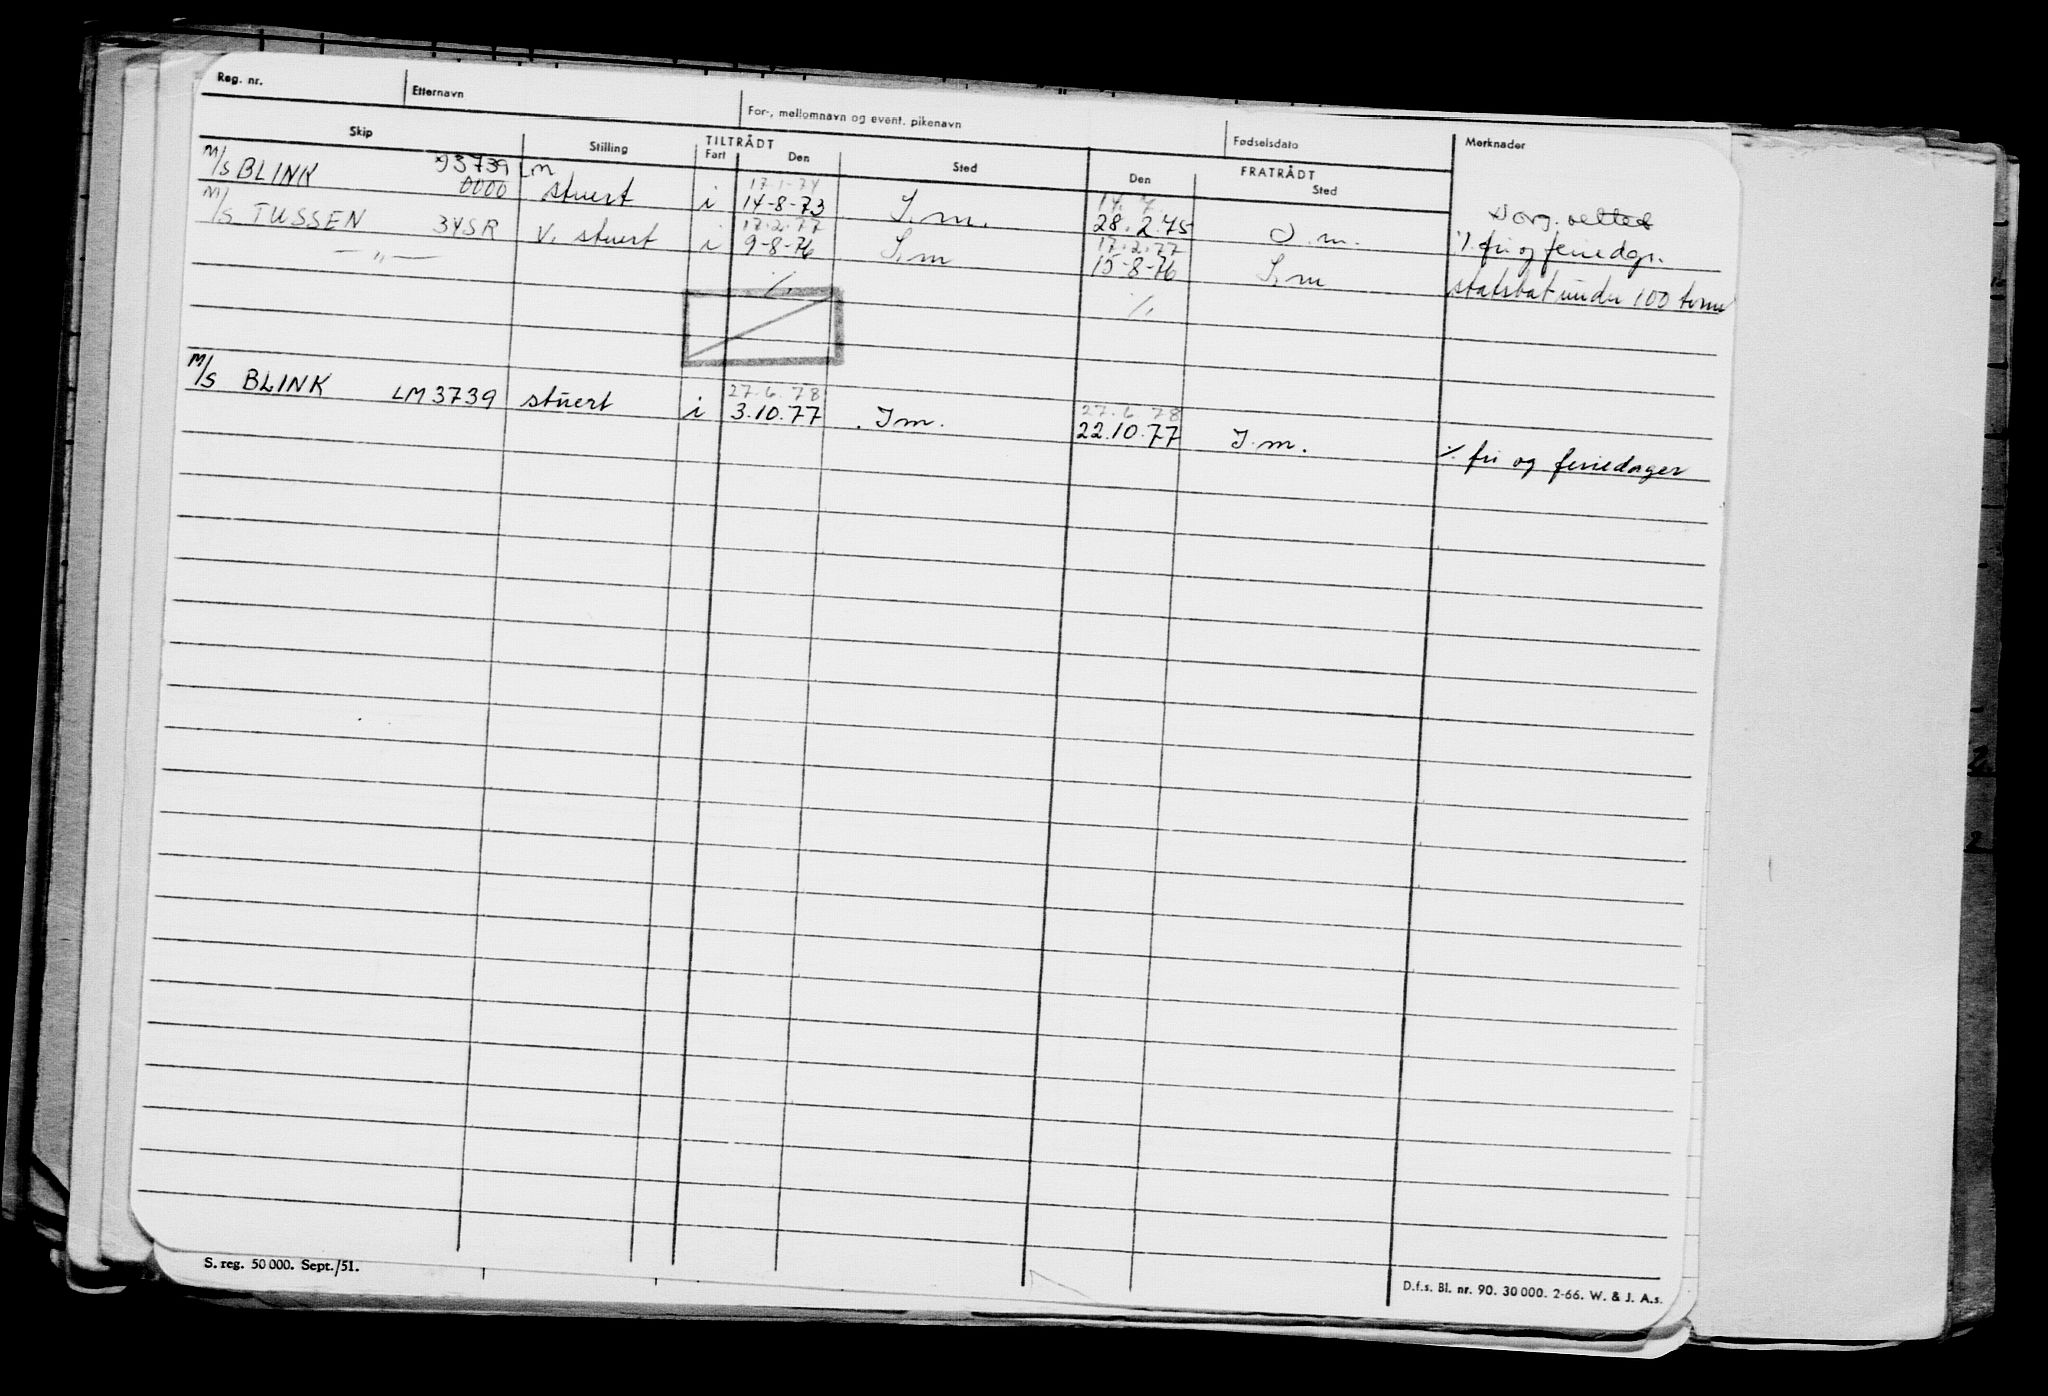 Reg. nr. Etternavn For-, mellomnavn og event. pikenavn Fødselsdato Merknader
Skip Stilling TILTRÅDT FRATRÅDT
Fart Den Sted Den Sted
M/S BLINK 93739 LM
0000 stuert i 17.1-74 14-8-73 I.m. 14.7. 28.2.75 I.m. org. rettet
M/S TUSSEN 34SR V. stuert i 17.2.77 9-8-76 I.m 17.2.77 15-8-76 I.m % fri og feriedgr.
— „ — % % under 100 tonn
M/S BLINK LM3739 stuert i 27.6.78 3.10.77 I.m. 27.6.78 22.10.77 I.m. % fri og feriedager
S. reg. 50 000. Sept./51.
D.f.s. Bl. nr. 90. 30 000. 2-66. W. & J. A.s.